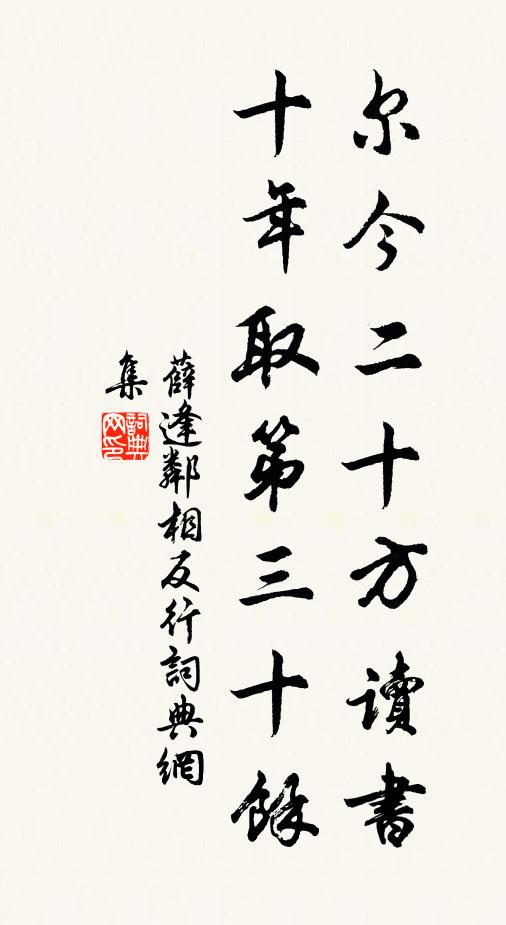 尔今二十方讀書
十年取第三十餘
薛逢鄰相反行詞典網
集
詞典网印